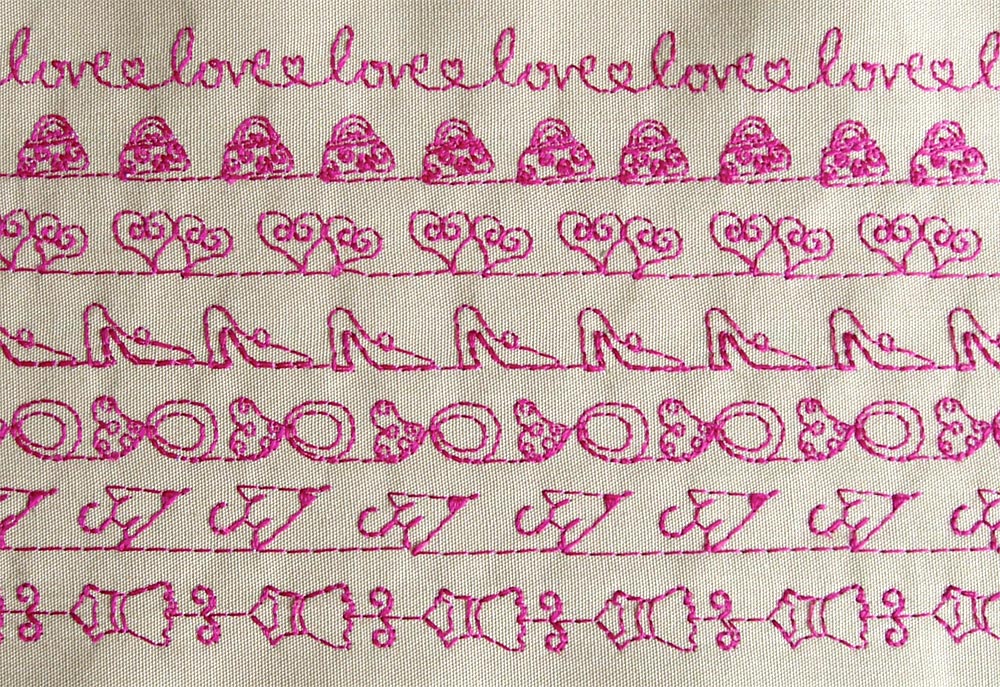 love love love love love love l